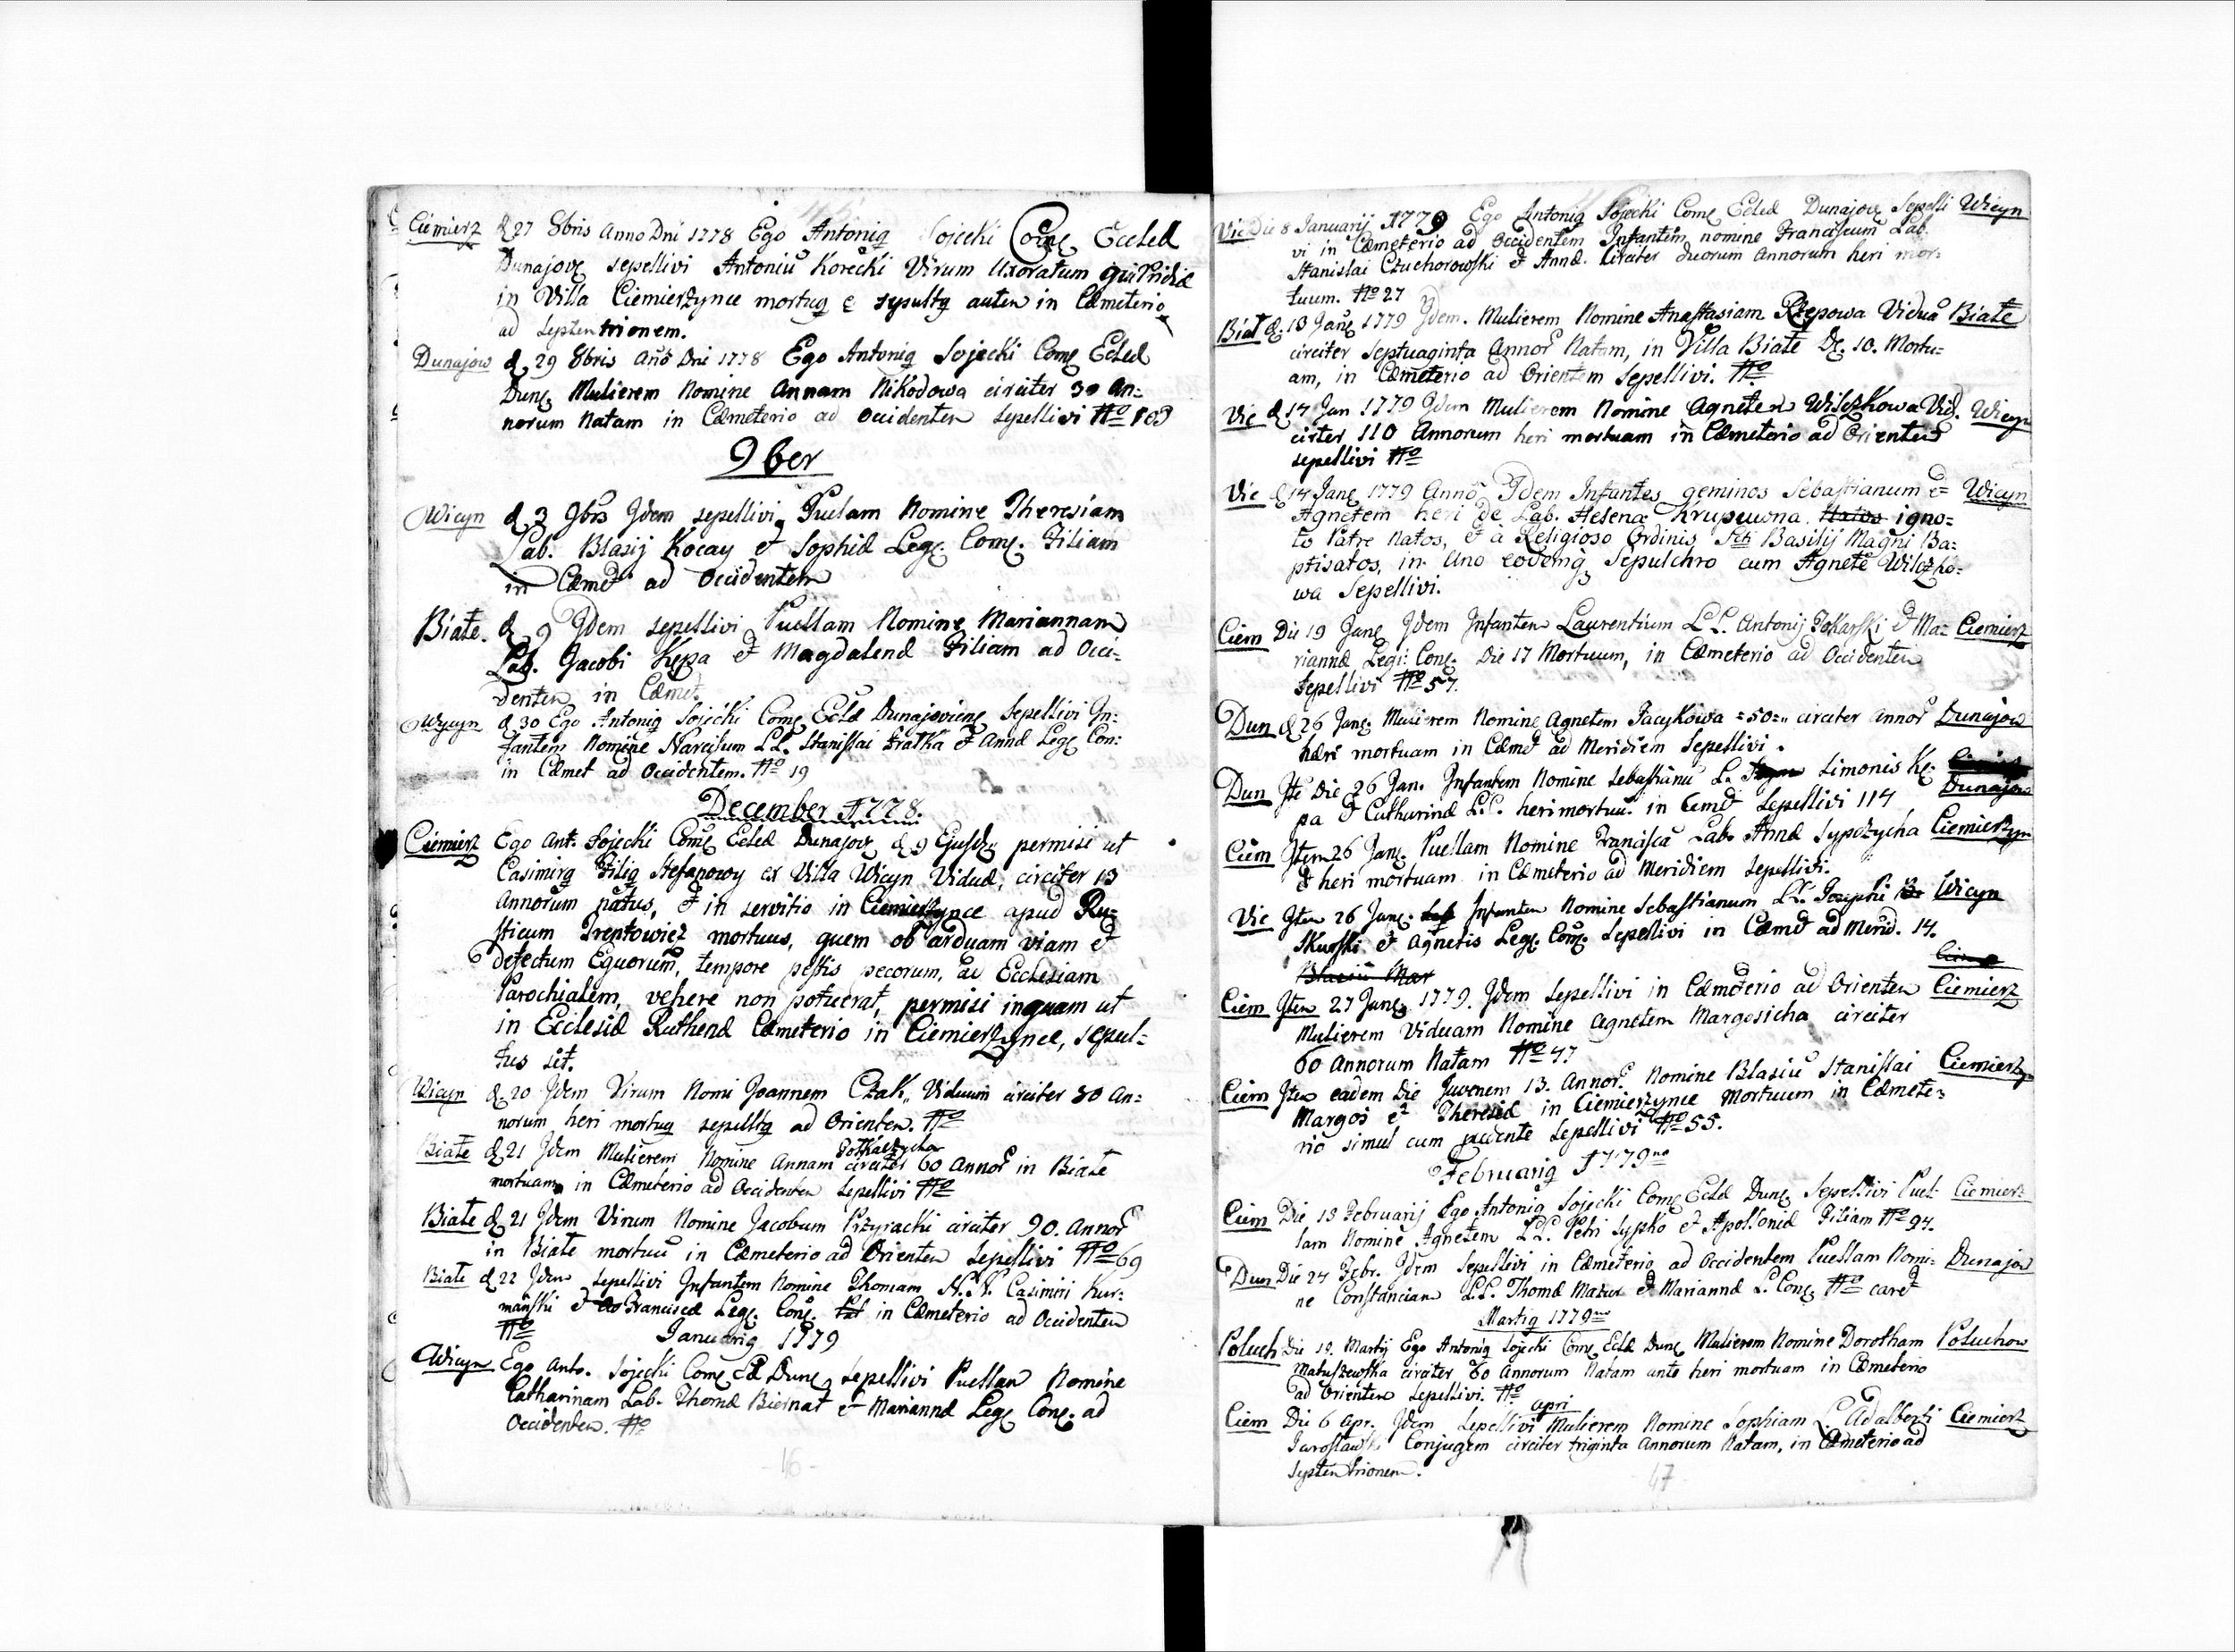 Ciemierz d 27 8bris Anno Dni 1778 Ego Antoniq Sojecki Comę Eccled
Dunajovę sepellivi Antoniū Korecki Virum Uxoratum qui Pridie
in Villa Ciemierzynce mortuq e sepultq autem in Cæmeterio
ad septentrionem.
Dunajow d. 29 8bris Anō Dni 1778 Ego Antoniq Sojecki Comę Ecled
Dunę Mulierem Nomine Annam Nikodowa circiter 30 An:
norum Natam in Cæmeterio ad Occidentem sepellivi No 103
9ber
Wicyn d. 3 9bris Jdem sepellivi Puelam Nomine Theresiam
Lab. Blasij Kocay et Sophiæ Legę. Conę. Filiam
in Cæmet ad Occidentem
Białe. d. 9 Jdem sepellivi Puellam Nomine Mariannam
Lab. Jacobi Kępa et Magdalenæ Filiam ad Occi:
dentem in Cæmet.
Wycyn d 30 Ego Antoniq Sojecki Comę Eclæ Dunajovienę Sepellivi In:
fantem Nomine Narcisum LL. Stanislai Fratka et Annæ Legę Con:
in Cæmet ad Occidentem. No 19
December 1778.
Ciemierz Ego Ant. Sojecki Comę Ecled Dunajovę d 9 Ejusdę permisi ut
Casimirq Filiq Stefanowy ex Villa Wicyn Viduæ, circiter 13
Annorum natus, et in servitio in Ciemierzynce apud Ru:
sticum Trentowicz mortuus, quem ob arduam viam et
defectum Equorum, tempore pestis pecorum, ad Ecclesiam
Parochialem, vehere non potuerat, permisi inquam ut
in Ecclesiæ Ruthenæ Cæmeterio in Ciemierzynce, sepul:
tus sit.
Wicyn d. 20 Jdem Virum Nomi Joannem Czak, Viduum circiter 30 An:
norum heri mortuq sepultq ad Orientem. No
Białe d 21 Jdem Mulierem Nomine Annam Potkaczycha circiter 60 Annor in Białe
mortuam in Cæmeterio ad Occidentem Sepellivi No
Białe d 21 Jdem Virum Nomine Jacobum Przyracki circiter 90. Annor
in Białe mortuū in Cæmeterio ad Orientem Sepellivi No 69
Białe d 22 Jdem Sepellivi Infantem Nomine Thomam N.N. Casimiri Kur:
mański et Franciscæ Legę. Conę. in Cæmeterio ad Occidentem
No
Januariq 1779
Wicyn Ego Anto. Sojecki Comę Eclæ Dunę Sepellivi Puellam Nomine
Catharinam Lab. Thomæ Biernat et Mariannæ Legę Conę. ad
Occidentem. No
46
Vic Die 8 Januarij 1779 Ego Antoniq Sojecki Comę Ecled Dunajovę Sepelli Wicyn
vi in Cæmeterio ad Occidentem Infantem nomine Franciscum Lab.
Stanislai Czuchorowski et Annæ. Circiter duorum Annorum heri mor:
tuum. No 27
Biał d. 13 Janę 1779 Jdem. Mulierem Nomine Anastasiam Rzepowa Viduā Białe
circiter Septuaginta Annor Natam, in Villa Białe D. 10. Mortu:
am, in Cæmeterio ad Orientem Sepellivi. No
Vic d 14 Jan 1779 Jdem Mulierem Nomine Agnetem Wilczkowa Vid. Wicyn
cirter 110 Annorum heri mortuam in Cæmeterio ad Orientem
sepellivi No
Vic d 14 Janę 1779 Anno Jdem Infantes geminos Sebastianum et Wicyn
Agnetem heri de Lab. Helena Krupuwna Natos igno:
to Patre Natos, et a Religioso Ordinis Scti Basilij Magni Ba:
ptisatos, in Uno eodemq Sepulchro cum Agnete Wilczko:
wa Sepellivi.
Ciem Die 19 Janę Jdem Infantem Laurentium LL. Antonij Tokarski et Ma: Ciemierz
riannæ Legi: Conę. Die 17 Mortuum, in Cæmeterio ad Occidentem
Sepellivi No 57.
Dun d 26 Janę. Mulierem Nomine Agnetem Jacykowa =50= circiter Annor Dunajow
hæri mortuam in Cæmet ad Meridiem Sepellivi.
Dun Ite Die 26 Jan. Infantem Nomine Sebastianū L. Simonis Kę:
pa et Catharinæ LC. heri mortuū in Cemet Sepellivi 114 Dunajow
Ciem Item 26 Janę. Puellam Nomine Franciscā Lab. Annæ Sypożycha Ciemierzyn
et heri mortuam in Cæmeterio ad Meridiem Sepellivi.
Vic Item 26 Janę. Infantem Nomine Sebastianum LL. Josephi Wicyn
Skurski et Agnetis Legę. Conę. Sepellivi in Cæmet ad Merid. 14.
Blasiū Mar
Ciem Item 27 Janę 1779. Jdem Sepellivi in Cæmeterio ad Orientem Ciemierz
Mulierem Viduam Nomine Agnetem Margosicha circiter
60 Annorum Natam No 47
Ciem Item eadem Die Juvenem 13. Annor. Nomine Blasiū Stanislai Ciemierz
Margos et Theresiæ in Ciemierzynce Mortuum in Cæmete:
rio simul cum pcdente Sepellivi No 55.
Februariq 1779no
Ciem Die 13 Februarij Ego Antoniq Sojecki Comę Eclæ Dunę Sepellivi Puel: Ciemierz
lam Nomine Agnetem LL. Petri Sypko et Apolloniæ Filiam No 94.
Dun Die 24 Febr. Jdem Sepellivi in Cæmeterio ad Occidentem Puellam Nomi: Dunajow
ne Constanciam LL. Thomæ Mazur et Mariannæ L. Conę No caret
Martiq 1779no
Poluch Die 19. Martij Ego Antoniq Sojecki Comę Eclæ Dunę Mulierem Nomine Dorotham Poluchow
Matuszewska circiter 60 Annorum Natam ante heri mortuam in Cæmeterio
ad Orientem Sepellivi. No
Apri
Ciem Die 6 Apr. Jdem Sepellivi Mulierem Nomine Sophiam L. Adalberti Ciemierz
Jarosławski Conjugem circiter triginta Annorum Natam, in Cæmeterio ad
Septentrionem.
47